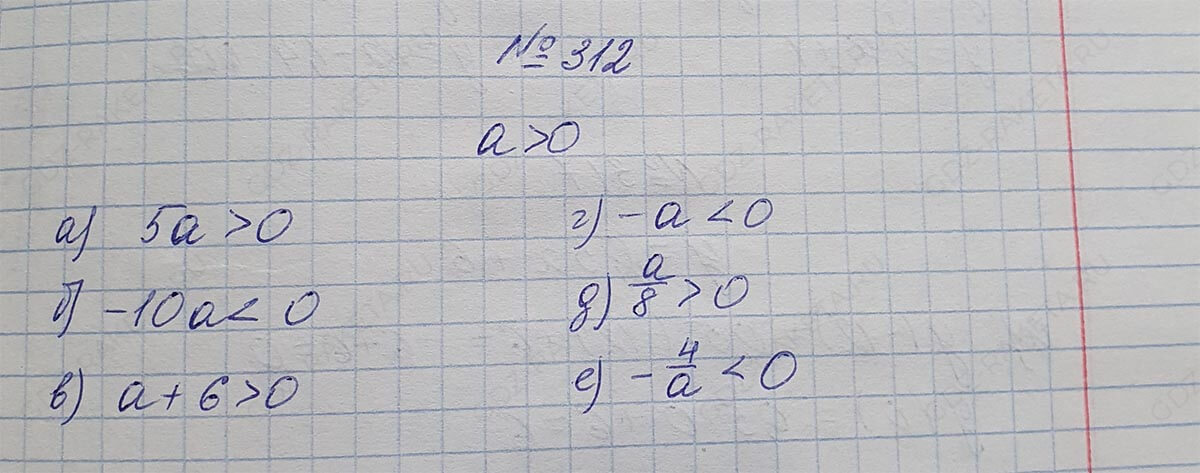 № 312
a > 0
а) 5a > 0
б) -10a < 0
в) a + 6 > 0
г) -a < 0
д) a/8 > 0
е) -4/a < 0